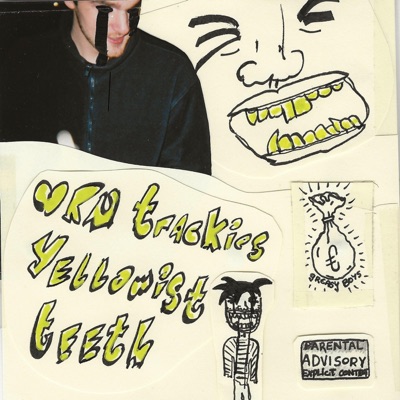 trackies
Yellowist
teeth
£
greasy boys
PARENTAL
ADVISORY
EXPLICIT